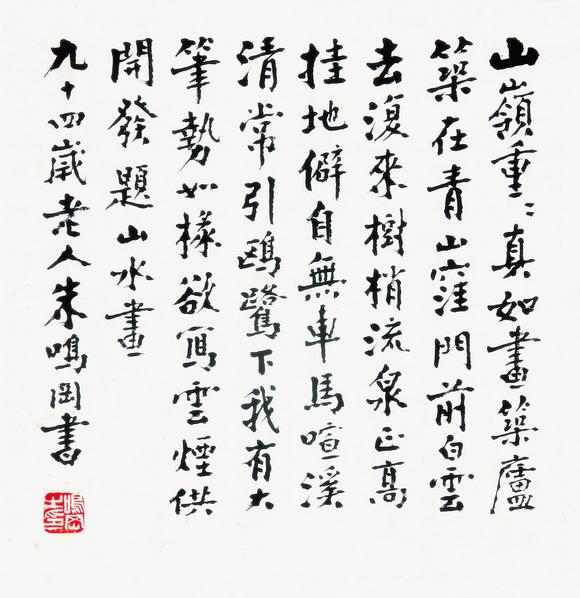 山嶺重〻真如畫築廬
築在青山窪門前白雲
去復來樹梢流泉正高
挂地僻自無車馬喧溪
清常引鷗鷺下我有大
筆勢如椽欲寫雲煙供
開發題山水畫
九十四歲老人朱鳴岡書